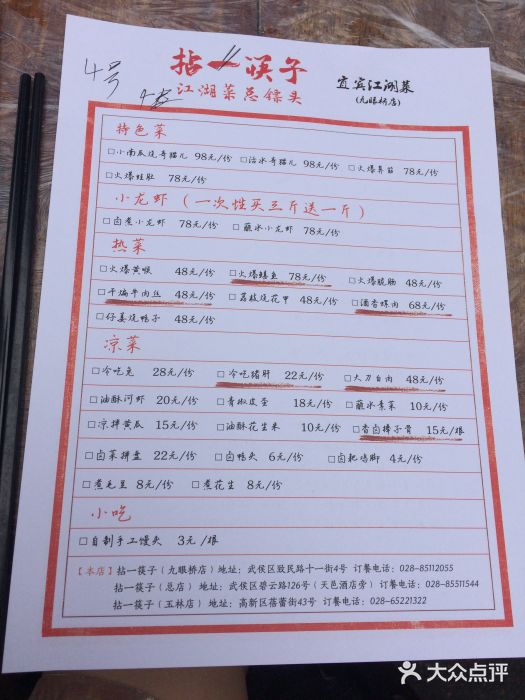 拈一筷子
江湖菜总镖头
宜宾江湖菜
(九眼桥店)
4号
特色菜
□小南瓜烧奇猫儿 98元/份 □泊水奇猫儿 98元/份 □火爆鼻筋 78元/份
□火爆蛙肚 78元/份
小龙虾（一次性买三斤送一斤）
□卤煮小龙虾 78元/份 □蘸水小龙虾 78元/份
热菜
□火爆黄喉 48元/份 □火爆鳝鱼 78元/份 □火爆脆肠 48元/份
□干煸牛肉丝 48元/份 □荔枝烧花甲 48元/份 □酒香螺肉 68元/份
□仔姜烧鸭子 48元/份
凉菜
□冷吃兔 28元/份 □冷吃猪肝 22元/份 □大刀白肉 48元/份
□油酥河虾 20元/份 □青椒皮蛋 18元/份 □蘸水素菜 10元/份
□凉拌黄瓜 15元/份 □油酥花生米 10元/份 □香卤棒子骨 15元/根
□卤菜拼盘 22元/份 □卤鸭头 6元/份 □卤耙鸡脚 4元/份
□煮毛豆 8元/份 □煮花生 8元/份
小吃
□自制手工馒头 3元/根
【本店】拈一筷子（九眼桥店）地址：武侯区致民路十一街4号 订餐电话：028-85112055
拈一筷子（总店）地址：武侯区碧云路126号（天邑酒店旁）订餐电话：028-85511544
拈一筷子（玉林店）地址：高新区蓓蕾街43号 订餐电话：028-65221322
大众点评